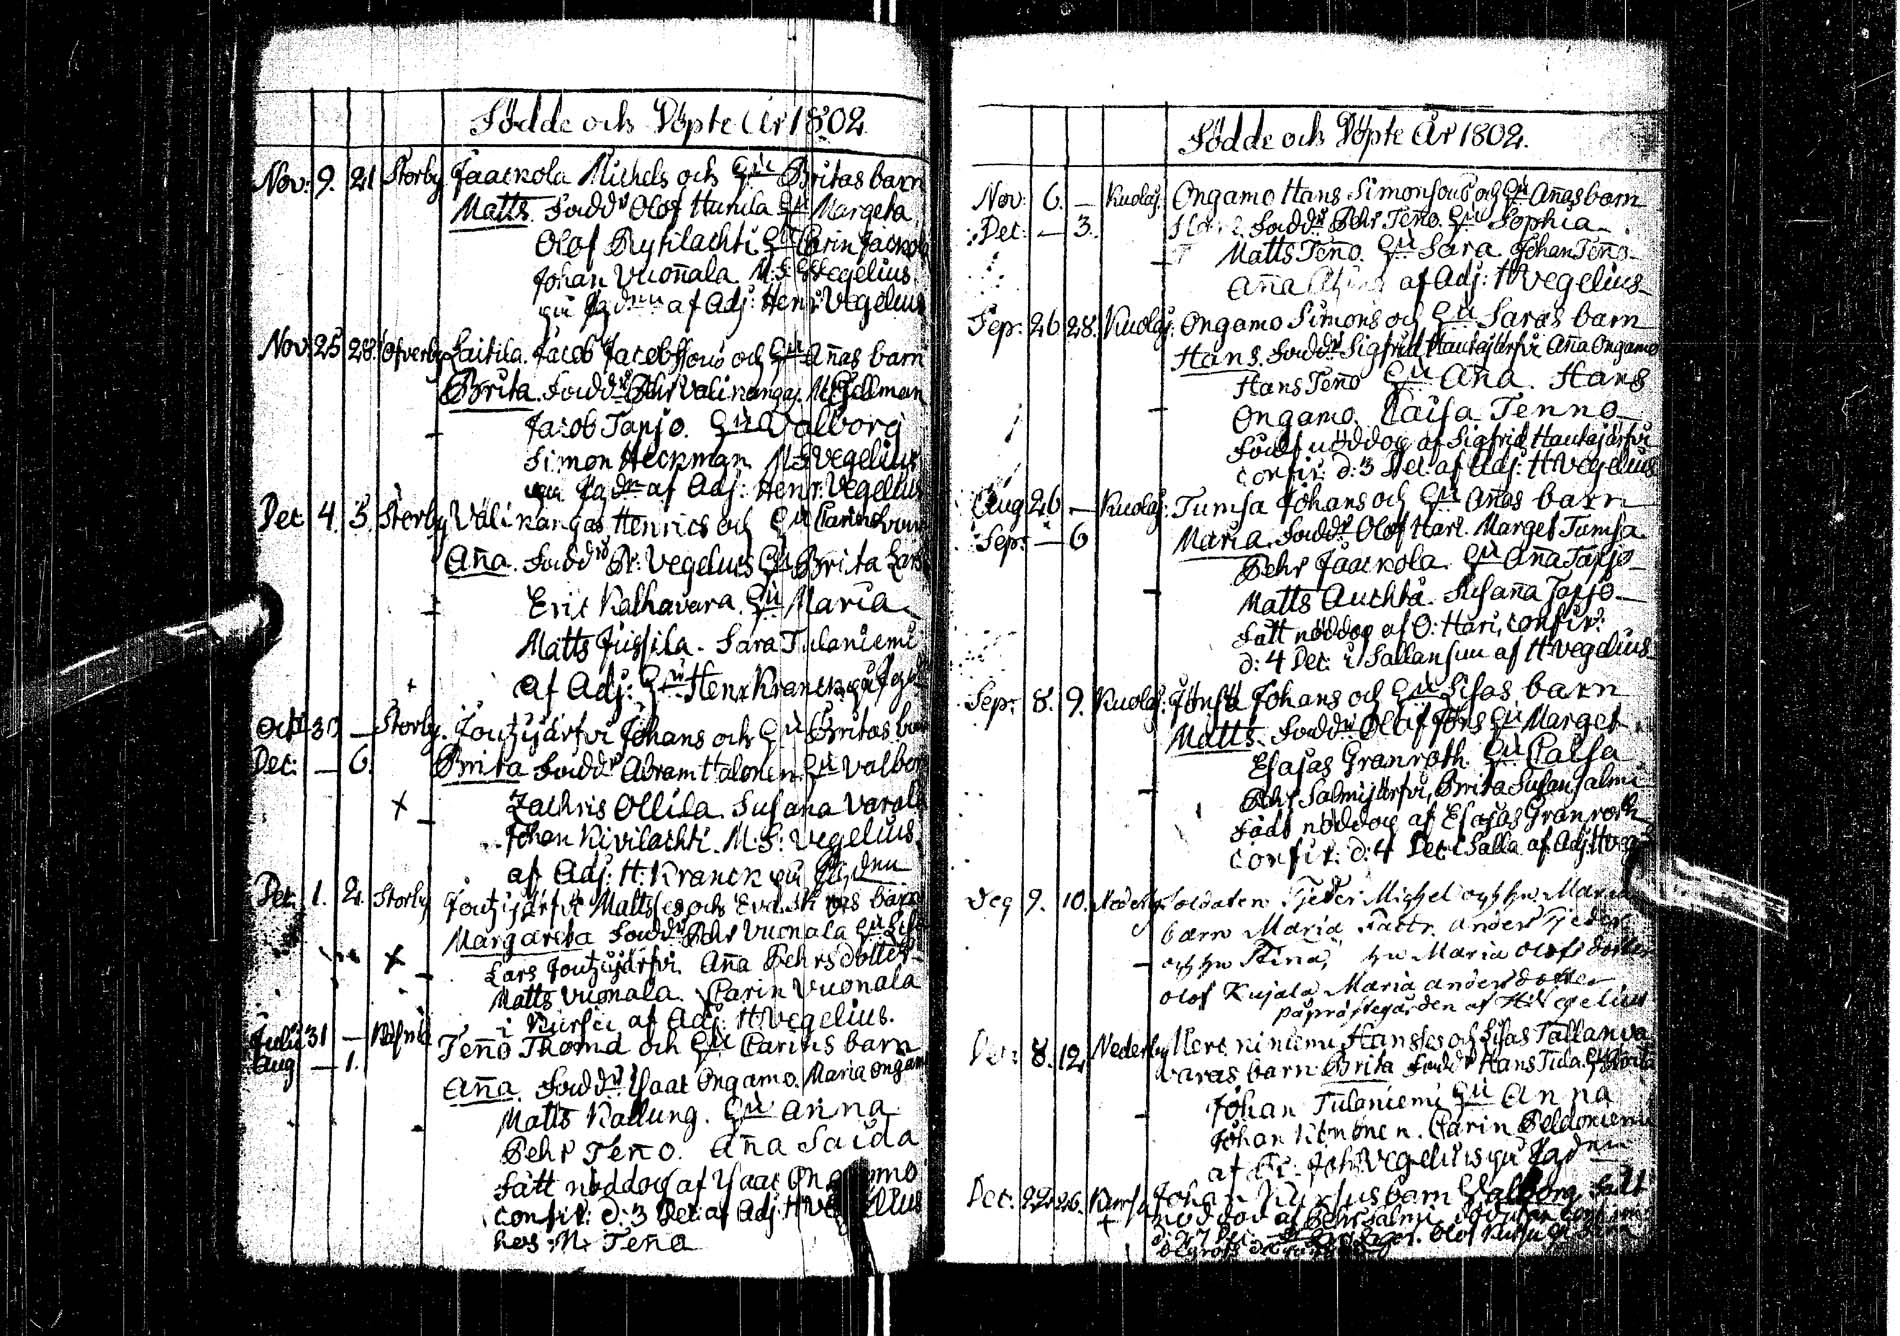 Födde och Döpte År 1802.
Nov: 9. 21 Storby Jaackola Michels och Hu Britas barn
Matts. Fadd: Olof Hurula Hu Margeta
Olof Kykilachti Hu Carin Jackola
Johan Vuoñala M:S: Vegelius
på Pgden af Adj: Henr: Vegelius
Nov 25 28 Ofverby Laitila. Jacob Jacobssons och Hu Añas barn
Brita. Fadd: Pehr Välikangas. M: Hellman
Jacob Tapjo. Hu Valborg
Simon Heckman M:S: Vegelius
på Pgdn af Adj: Henr: Vegelius
Dec 4. 5. Storby Välikangas Henrics och Hu Carins barn
Aña. Fadd: Pr: Vegelius Hu Brita Lars
Eric Kalhavara. Hu Maria
Matts Jussila. Sara Tulaniemi
af Adj: Henr Kranck på Pgdn
Octb 30 — Storby. Joutzijärfvi Johans och Hu Britas barn
Dec: — 6. Brita Fadd: Abram Halonen Hu Valborg
Zachris Ollila. Susaña Varala
Johan Kivilachti. M:S: Vegelius
af Adj: H: Kranck på Pgden
Dec. 1. 2. Storby Joutzijärfvi Mattses och Eva barn
Margareta Fadd: Pehr Vuonala Hu Lisa
Lars Joutzijärfvi Aña Pehrsdotter
Matts Vuonala. Carin Vuonala
i Kursu af Adj: H Vegelius.
Julii 31 — Teño Thoma och Hu Carins barn
Aug — 1. Aña. Fadd: Ysaac Ongamo. Maria Ongamo
Matts Kallung. Hu Anna
Pehr Teño. Aña Saida
Fått nöddop af Ysaac Ongamo
confir: d: 3 Dec: af Adj: H Vegelius
hos N: Teña
Födde och Döpte År 1802.
Nov: 6. — Kuolaj. Ongamo Hans Simonsons och Hu Añas barn
Dec: — 3. Fadd: Pehr Teño. Hu Sophia
Matts Teño. Hu Sara Johan Teño
Aña af Adj: H Vegelius
Sep: 26 28. Kuolaj: Ongamo Simons och Hu Saras barn
Hans. Fadd: Sigfrid Hautajärfvi Aña Ongamo
Hans Teño Hu Aña. Hans
Ongamo. Caisa Tenno
Fådt nöddop af Sigfrid Hautajärfvi
confir: d: 3 Dec: af Adj: H Vegelius
Aug 26 — Kuolaj: Tumsa Johans och Hu Añas barn
Sep: — 6 Maria. Fadd: Olof Hari. Marget Tumsa
Pehr Jaackola Hu Aña Tapjo
Matts Auchta. Susaña Tapjo
Fått nöddop af O: Hari, confir:
d: 4 Dec: i Sallansuu af H Vegelius
Sep: 8. 9. Kuolaj: Johans och Hu Lisas barn
Matts. Fadd: Olof Jöns Hu Marget
Esajas Granroth. Hu Caisa
Pehr Salmijärfvi, Brita Susan Salmi
Fådt nöddop af Esajas Granroth
confir: d: 4 Dec: i Salla af Adj: H Veg
Dec 9. 10. Nederby Soldaten Tjeder Michel och hu Maria
barn Maria Faddr. Anders Tjeder
och hu Stina, hu Maria Olofsdotter
Olof Kujala Maria Andersdotter
på prästegården af H: Vegelius
Dec: 8. 12 Nederby Kerkiniemi Hansses och Lisas Tallan va
varas barn Brita Fadd: Hans Tida. Hu Brita
Johan Tulaniemi Hu Anna
Johan Könönen. Carin Peldoniemi
af Joh: Vegelius på Pgden
Dec: 22 26. Kursu Johan Kursus barn Valborg fått
nöddop af Pehr Salmi
d: 27 Dec: Olof Kursu